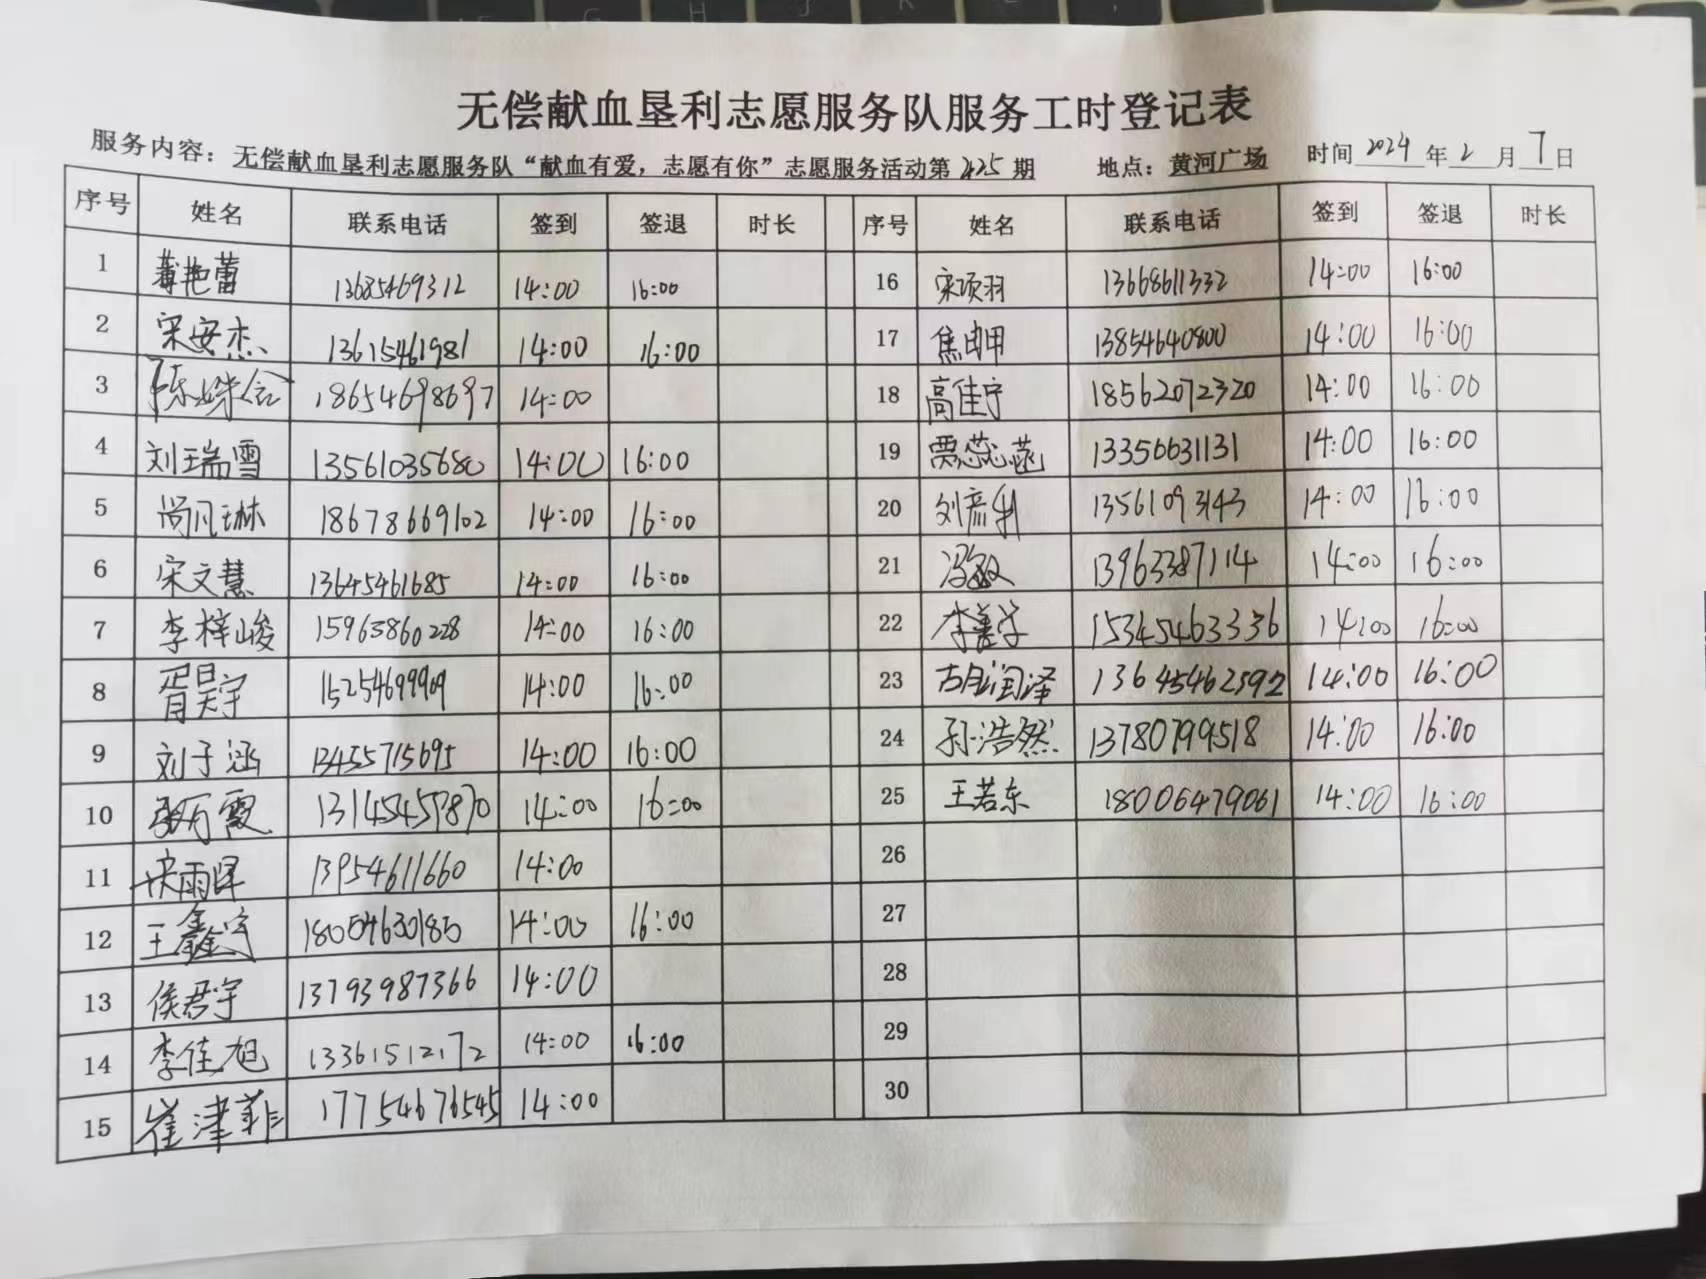 无偿献血垦利志愿服务队服务工时登记表
服务内容：无偿献血垦利志愿服务队“献血有爱，志愿有你”志愿服务活动第425期 地点：黄河广场 时间2024年2月7日
序号 姓名 联系电话 签到 签退 时长 序号 姓名 联系电话 签到 签退 时长
1 艳蕾 13685469312 14:00 16:00 16 宋顷羽 13668611332 14:00 16:00
2 宋安杰 13615461981 14:00 16:00 17 焦 13854640800 14:00 16:00
3 陈姝含 18654698697 14:00 18 高佳宁 18562072320 14:00 16:00
4 刘瑞雪 13561035680 14:00 16:00 19 贾蕊菡 13356631131 14:00 16:00
5 尚凡琳 18678669102 14:00 16:00 20 刘彦利 13561093143 14:00 16:00
6 宋文慧 13645461685 14:00 16:00 21 冯敏 13963387114 14:00 16:00
7 李梓峻 15963860228 14:00 16:00 22 李善学 15345463336 14:00 16:00
8 胥昊宇 15254699909 14:00 16:00 23 古润泽 13645462592 14:00 16:00
9 刘子涵 13455715695 14:00 16:00 24 孙浩然 13780799518 14:00 16:00
10 张万霞 13145457870 14:00 16:00 25 王若东 18006479061 14:00 16:00
11 雨 13954611660 14:00 26
12 王鑫宇 18054630180 14:00 16:00 27
13 侯君宇 13793987366 14:00 28
14 李佳旭 13361512172 14:00 16:00 29
15 崔津菲 17754676545 14:00 30